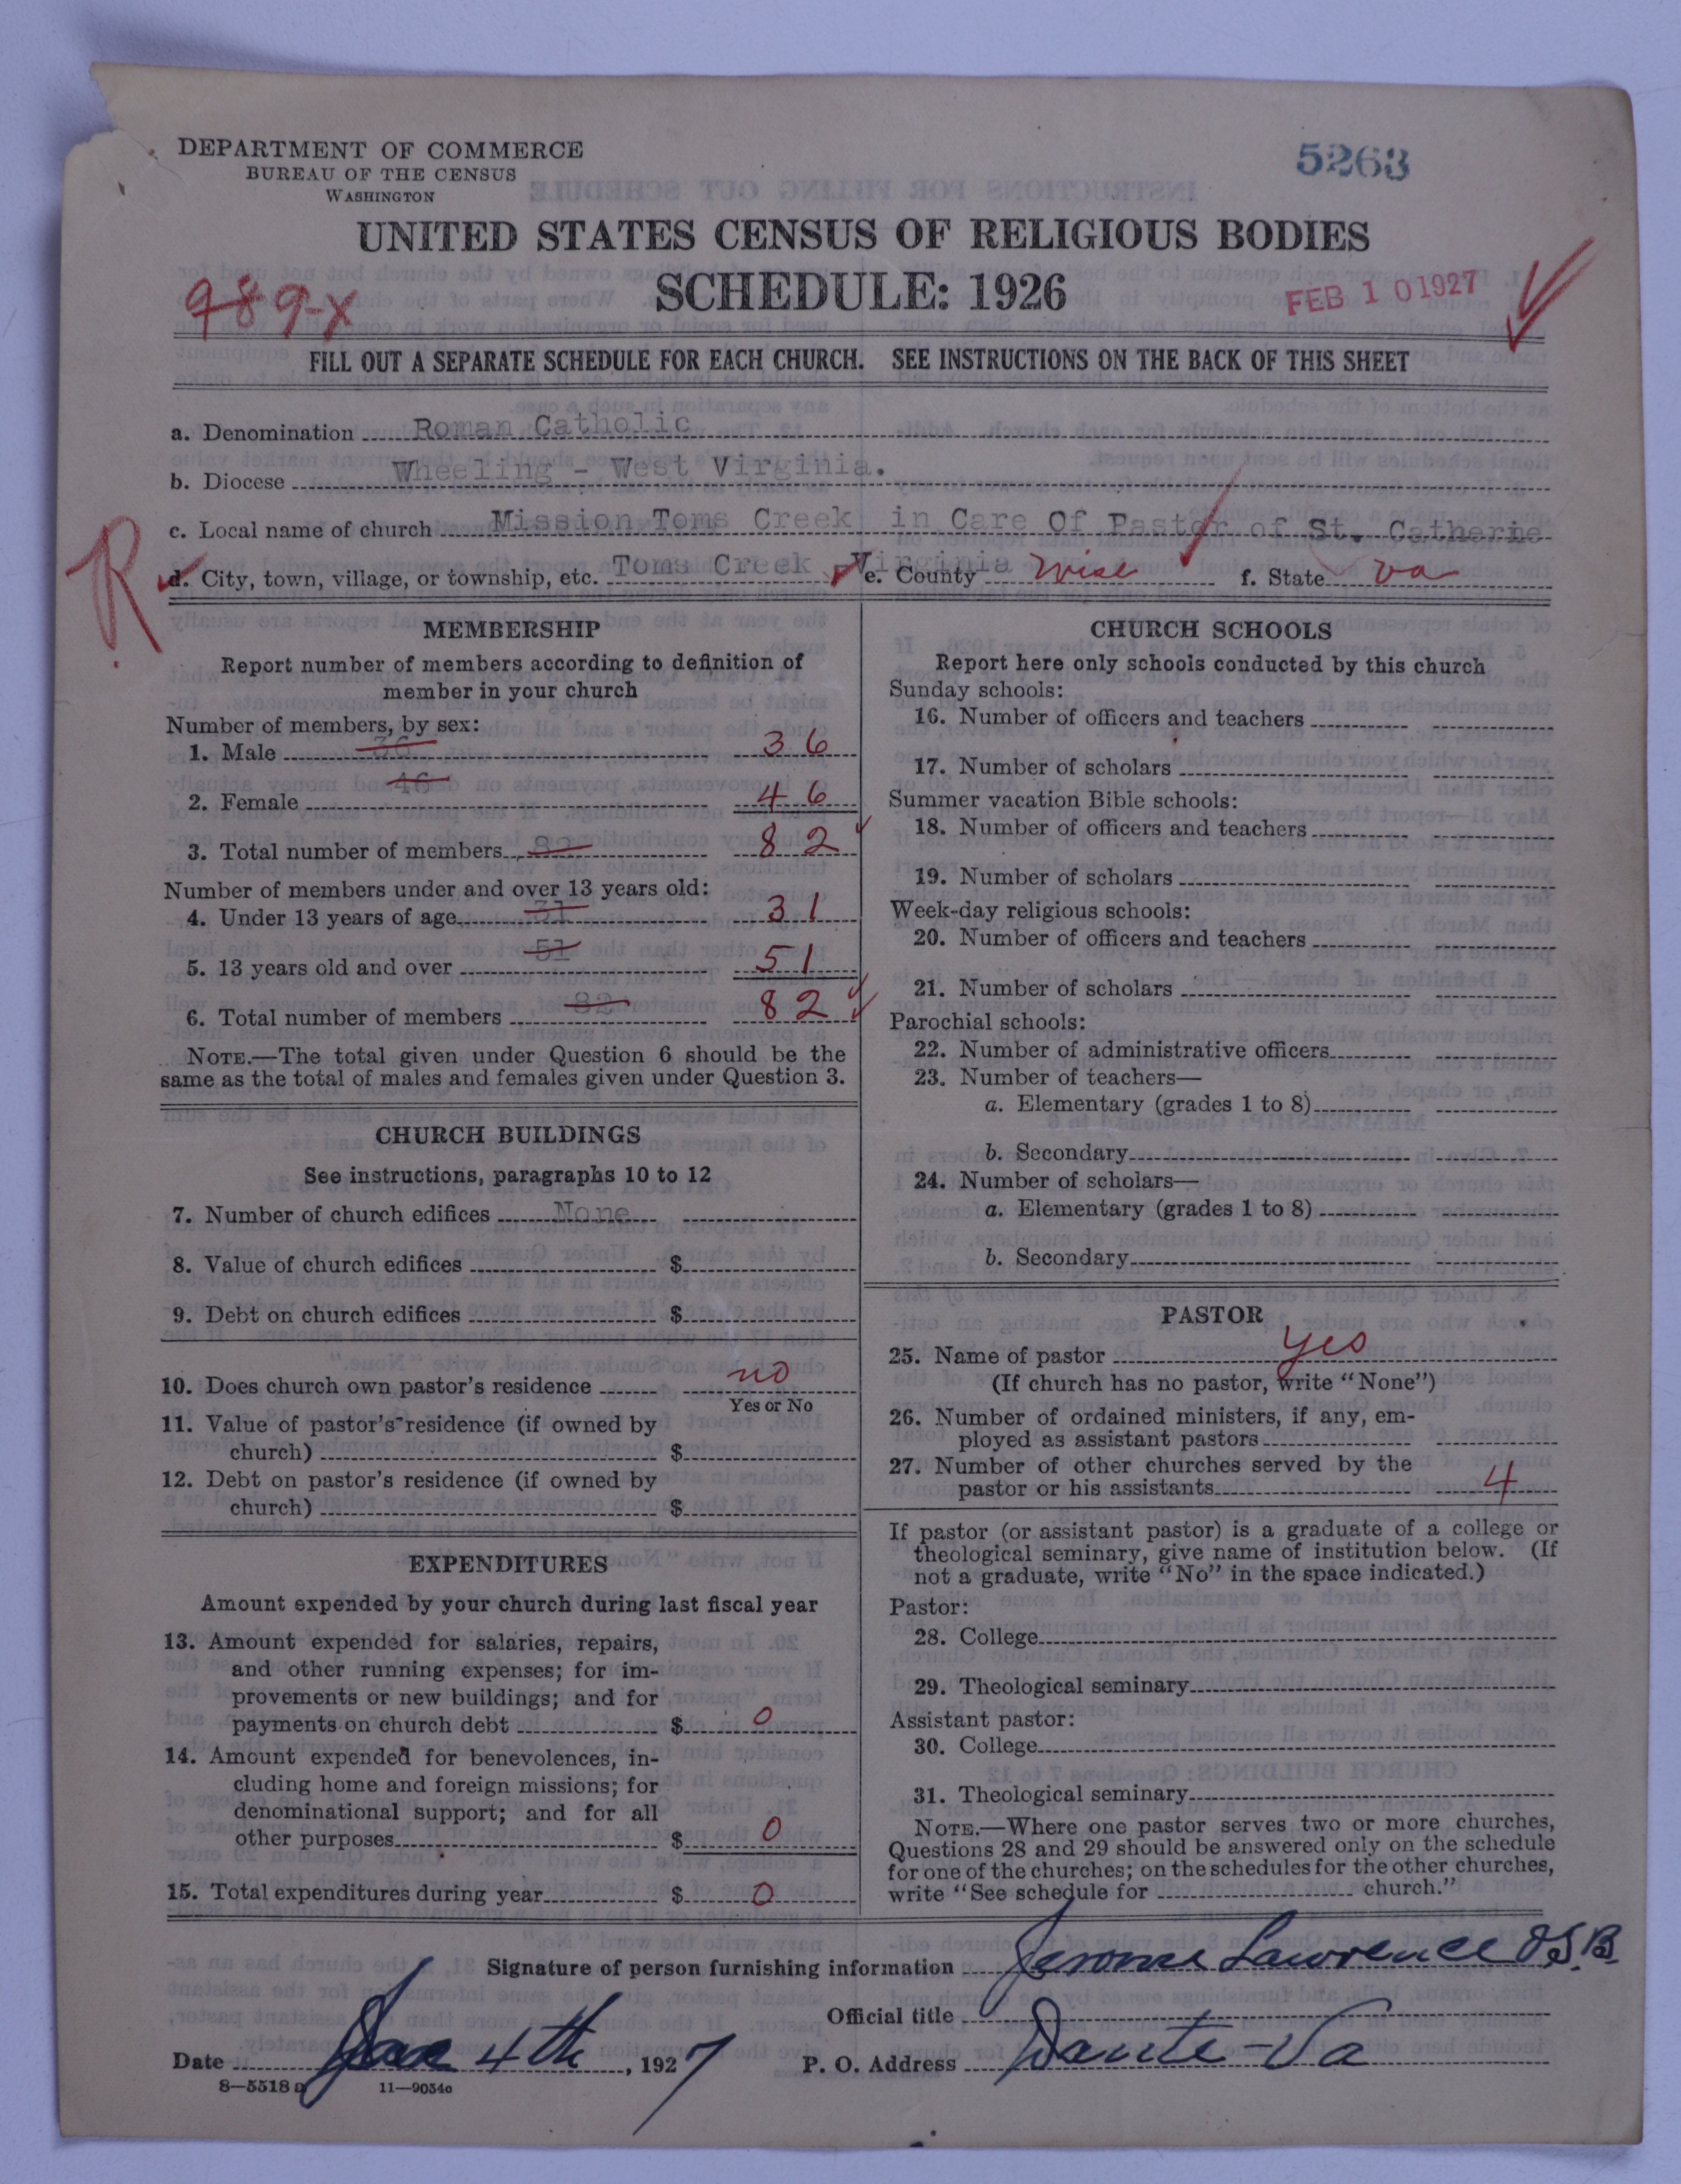 DEPARTMENT OF COMMERCE
BUREAU OF THE CENSUS
WASHINGTON
5263
UNITED STATES CENSUS OF RELIGIOUS BODIES
SCHEDULE: 1926
989-X
FEB 10 1927
FILL OUT A SEPARATE SCHEDULE FOR EACH CHURCH. SEE INSTRUCTIONS ON THE BACK OF THIS SHEET
a. Denomination Roman Catholic
b. Diocese Wheeling - West Virginia.
c. Local name of church Mission Toms Creek in Care Of Pastor of St. Catherine
R
d. City, town, village, or township, etc. Toms Creek Virginia e. County Wise f. State Va
MEMBERSHIP
Report number of members according to definition of
member in your church
Number of members, by sex:
1. Male 36 36
2. Female 46 46
3. Total number of members 82 82
Number of members under and over 13 years old:
4. Under 13 years of age 31 31
5. 13 years old and over 51 51
6. Total number of members 82 82
NOTE.—The total given under Question 6 should be the
same as the total of males and females given under Question 3.
CHURCH BUILDINGS
See instructions, paragraphs 10 to 12
7. Number of church edifices None
8. Value of church edifices $
9. Debt on church edifices $
10. Does church own pastor's residence no
Yes or No
11. Value of pastor's residence (if owned by
church) $
12. Debt on pastor's residence (if owned by
church) $
EXPENDITURES
Amount expended by your church during last fiscal year
13. Amount expended for salaries, repairs,
and other running expenses; for im-
provements or new buildings; and for
payments on church debt $ 0
14. Amount expended for benevolences, in-
cluding home and foreign missions; for
denominational support; and for all
other purposes $ 0
15. Total expenditures during year $ 0
CHURCH SCHOOLS
Report here only schools conducted by this church
Sunday schools:
16. Number of officers and teachers
17. Number of scholars
Summer vacation Bible schools:
18. Number of officers and teachers
19. Number of scholars
Week-day religious schools:
20. Number of officers and teachers
21. Number of scholars
Parochial schools:
22. Number of administrative officers
23. Number of teachers—
a. Elementary (grades 1 to 8)
b. Secondary
24. Number of scholars—
a. Elementary (grades 1 to 8)
b. Secondary
PASTOR
25. Name of pastor yes
(If church has no pastor, write "None")
26. Number of ordained ministers, if any, em-
ployed as assistant pastors
27. Number of other churches served by the
pastor or his assistants 4
If pastor (or assistant pastor) is a graduate of a college or
theological seminary, give name of institution below. (If
not a graduate, write "No" in the space indicated.)
Pastor:
28. College
29. Theological seminary
Assistant pastor:
30. College
31. Theological seminary
NOTE.—Where one pastor serves two or more churches,
Questions 28 and 29 should be answered only on the schedule
for one of the churches; on the schedules for the other churches,
write "See schedule for church."
Signature of person furnishing information Jerome Lawrence O.S.B.
Official title
Date Jan 4th, 1927 P. O. Address Dante - Va
8—5518a 11—9034c